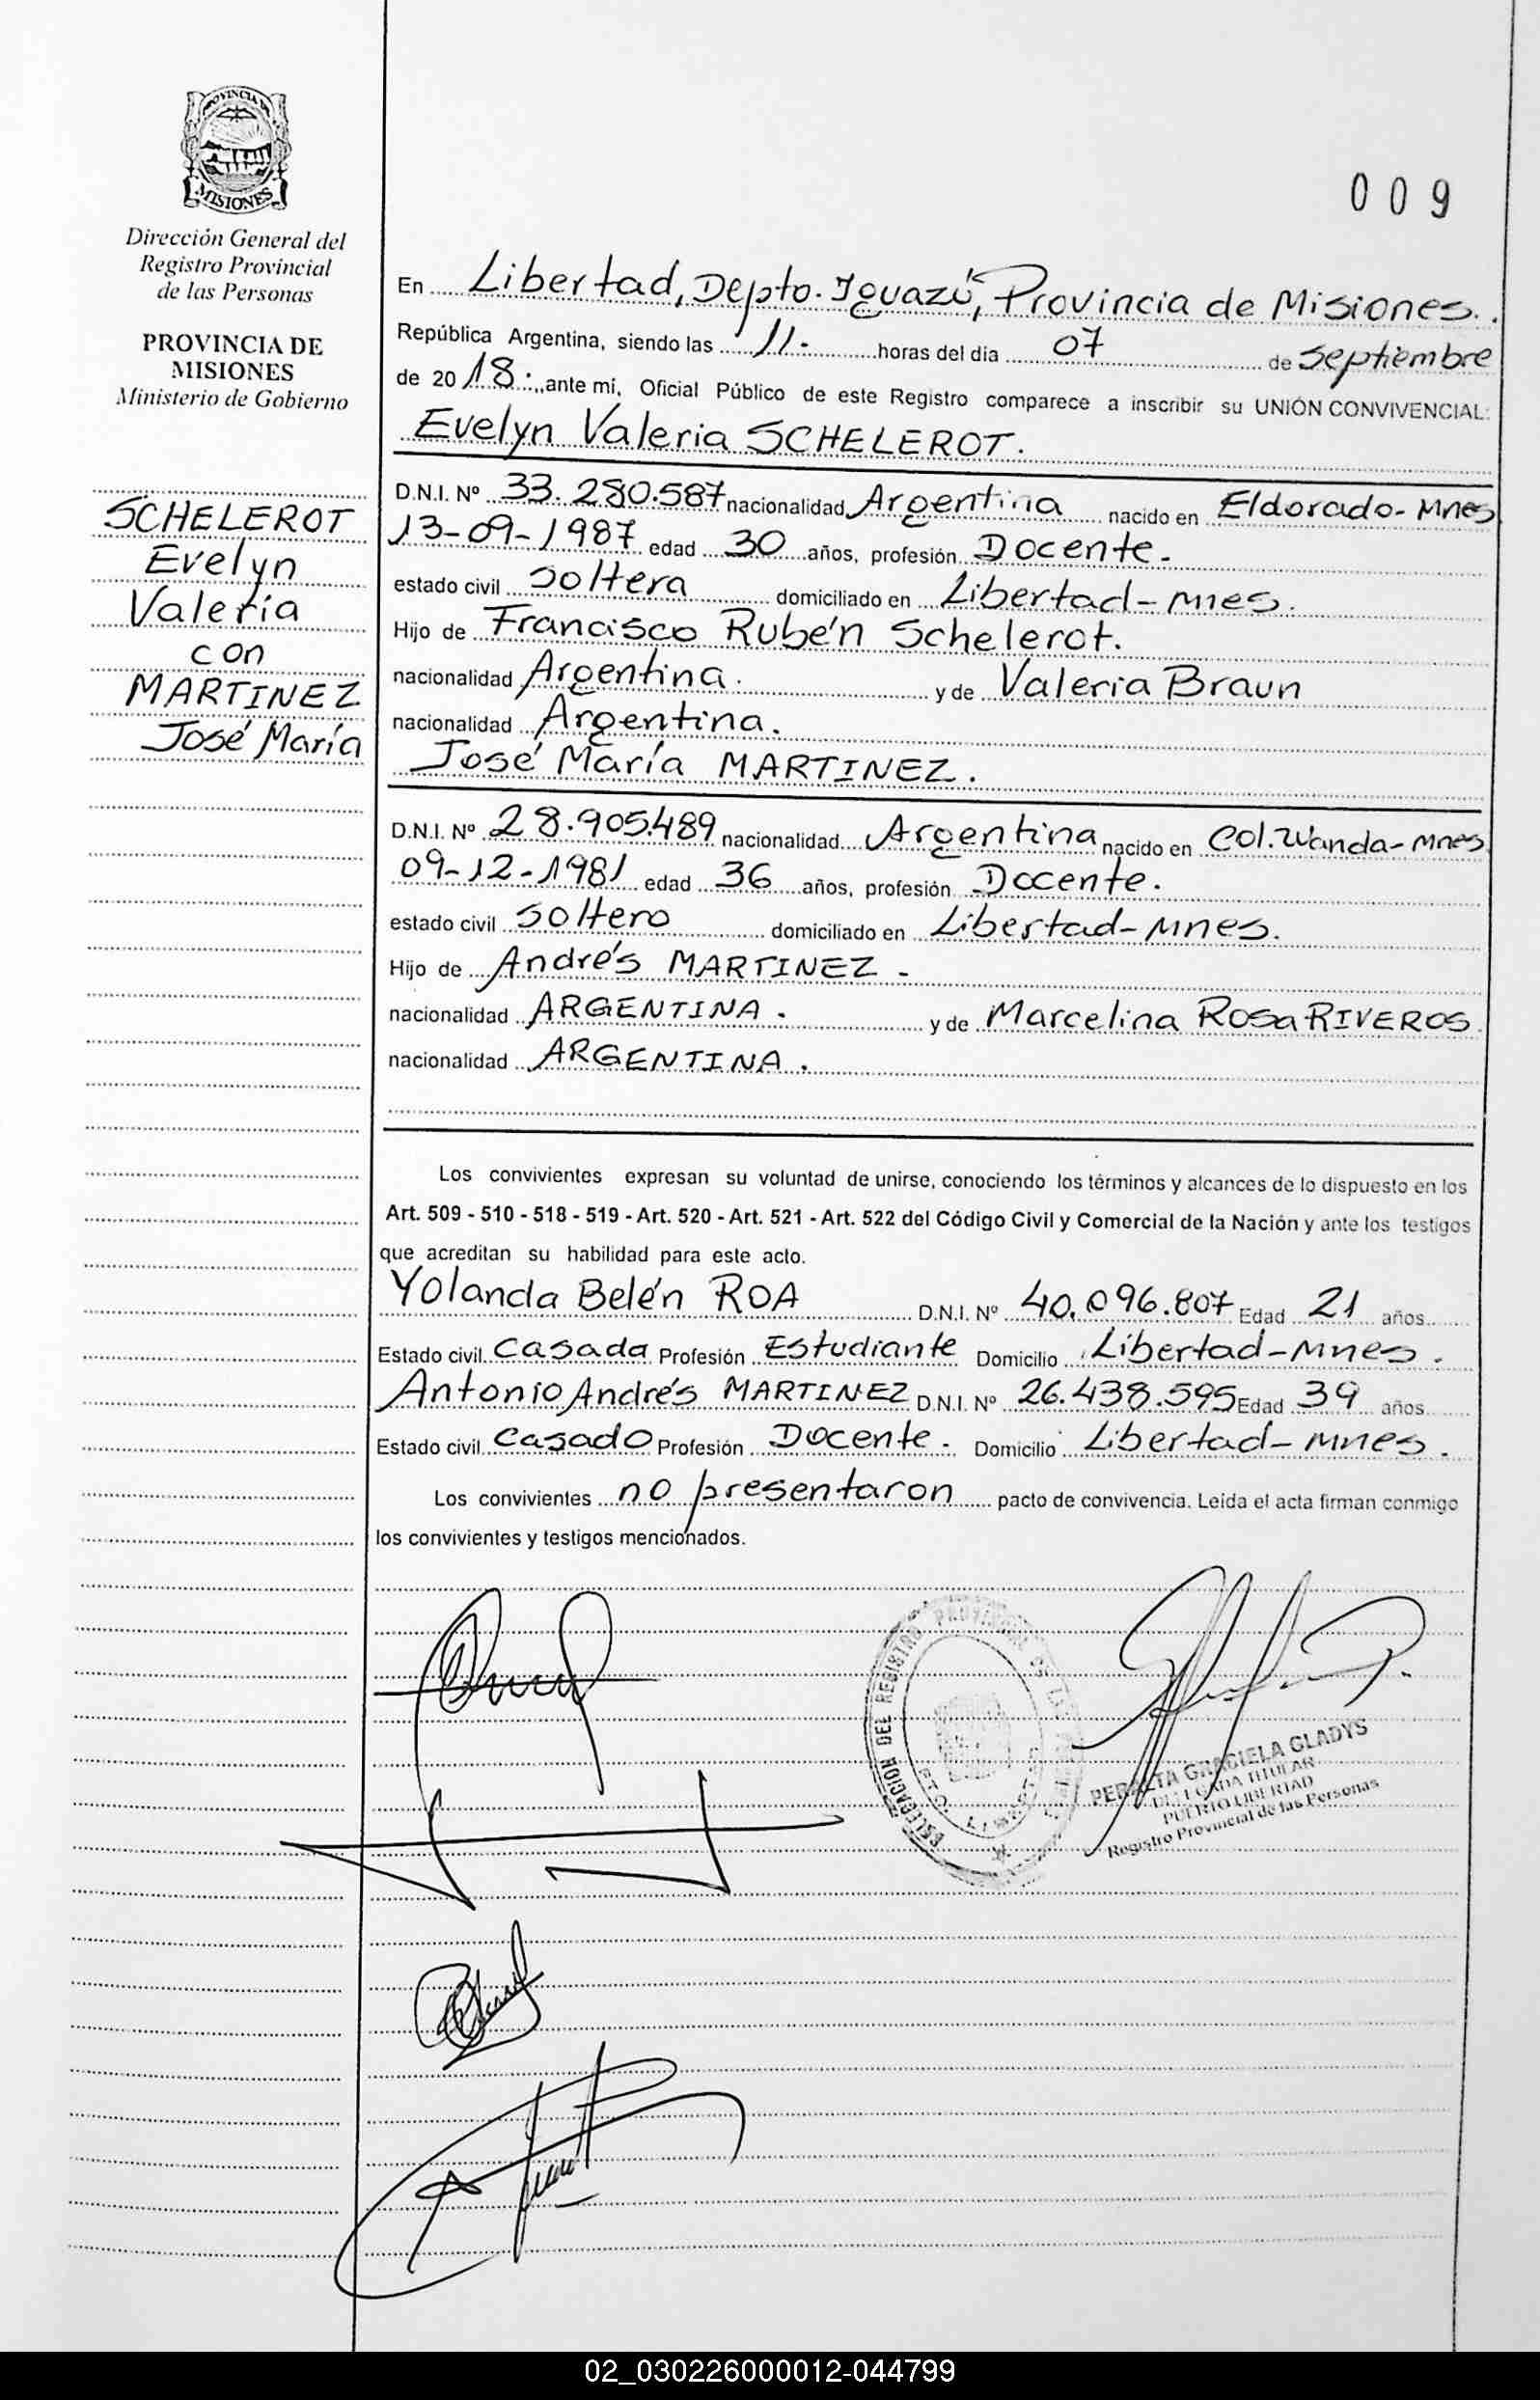 PROVINCIA DE
MISIONES
Dirección General del
Registro Provincial
de las Personas
PROVINCIA DE
MISIONES
Ministerio de Gobierno
SCHELEROT
Evelyn
Valeria
con
MARTINEZ
José María
009
En Libertad, Depto. Iguazú, Provincia de Misiones.
República Argentina, siendo las 11. horas del día 07 de Septiembre
de 2018. ante mí, Oficial Público de este Registro comparece a inscribir su UNIÓN CONVIVENCIAL:
Evelyn Valeria SCHELEROT.
D.N.I. Nº 33.280.587 nacionalidad Argentina nacido en Eldorado-Mnes
13-09-1987 edad 30 años, profesión Docente.
estado civil Soltera domiciliado en Libertad-Mnes.
Hijo de Francisco Rubén Schelerot.
nacionalidad Argentina. y de Valeria Braun
nacionalidad Argentina.
José María MARTINEZ.
D.N.I. Nº 28.905.489 nacionalidad Argentina nacido en Col. Wanda-Mnes
09-12-1981 edad 36 años, profesión Docente.
estado civil Soltero domiciliado en Libertad-Mnes.
Hijo de Andrés MARTINEZ.
nacionalidad ARGENTINA. y de Marcelina Rosa RIVEROS
nacionalidad ARGENTINA.
Los convivientes expresan su voluntad de unirse, conociendo los términos y alcances de lo dispuesto en los
Art. 509 - 510 - 518 - 519 - Art. 520 - Art. 521 - Art. 522 del Código Civil y Comercial de la Nación y ante los testigos
que acreditan su habilidad para este acto.
Yolanda Belén ROA D.N.I. Nº 40.096.807 Edad 21 años
Estado civil Casada Profesión Estudiante Domicilio Libertad-Mnes.
Antonio Andrés MARTINEZ D.N.I. Nº 26.438.595 Edad 39 años
Estado civil Casado Profesión Docente. Domicilio Libertad-Mnes.
Los convivientes no presentaron pacto de convivencia. Leída el acta firman conmigo
los convivientes y testigos mencionados.
DELEGACION DEL REGISTRO PROVINCIAL DE LAS
PERALTA GRACIELA GLADYS
DELEGADA TITULAR
PUERTO LIBERTAD
Registro Provincial de las Personas
02_030226000012-044799